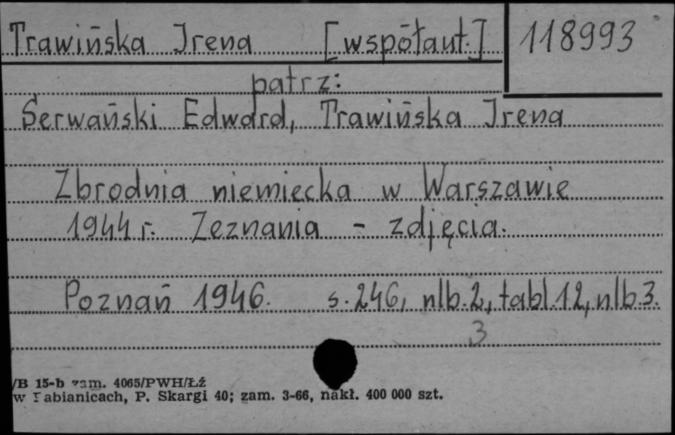 Trawińska Irena [współaut.] 118993
patrz:
Serwański Edward, Trawińska Irena
Zbrodnia niemiecka w Warszawie
1944 r. Zeznania - zdjęcia.
Poznań 1946. s. 246, nlb. 2, tabl. 12, nlb 3.
3
/B 15-b zam. 4065/PWH/Łź
w Pabianicach, P. Skargi 40; zam. 3-66, nakł. 400 000 szt.